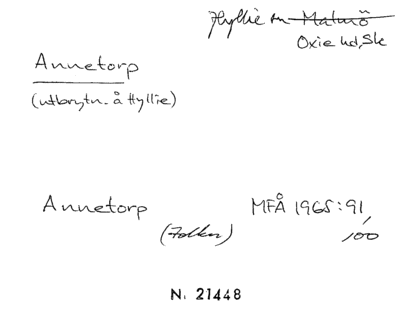 Hyllie sn Malmö
Oxie hd, Sk
Annetorp
(utbrytn. å Hyllie)
Annetorp MFÅ 1965:91
(Folkn) 100
N. 21448